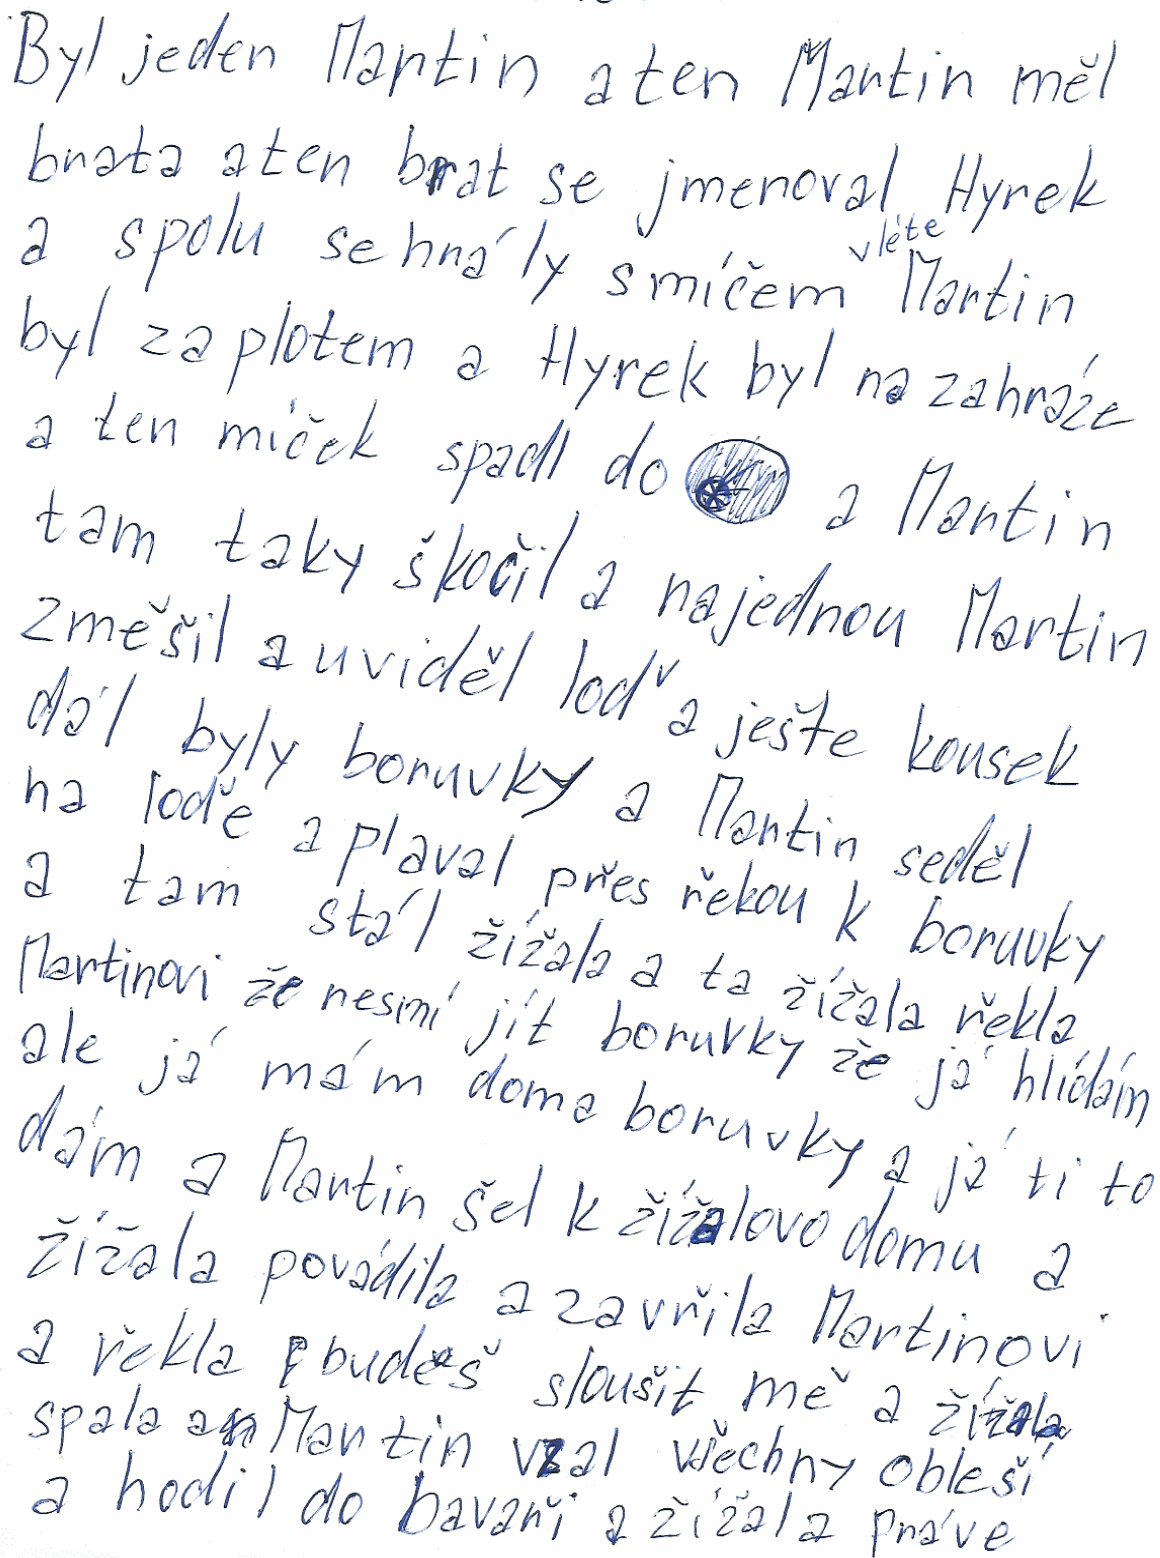 Byl jeden Martin a ten Martin měl
brata a ten brat se jmenoval Hyrek
a spolu se hnály smíčem v léte Martin
byl za plotem a Hyrek byl na zahráže
a ten míček spadl do a Martin
tam taky škočil a najednou Martin
změšil a uviděl loď a ješte kousek
dál byly boruvky a Martin seděl
na lodě a plaval přes řekou k boruvky
a tam stál žížala a ta žížala řekla
Martinovi že nesmí jít boruvky že já hlídám
ale já mám doma boruvky a já ti to
dám a Martin šel k žížalovo domu a
žížala povádila a zavřila Martinovi
a řekla budeš sloušit mě a žížala
spala a Martin vzal všechny obleší
a hodil do bavaři a žížala práve